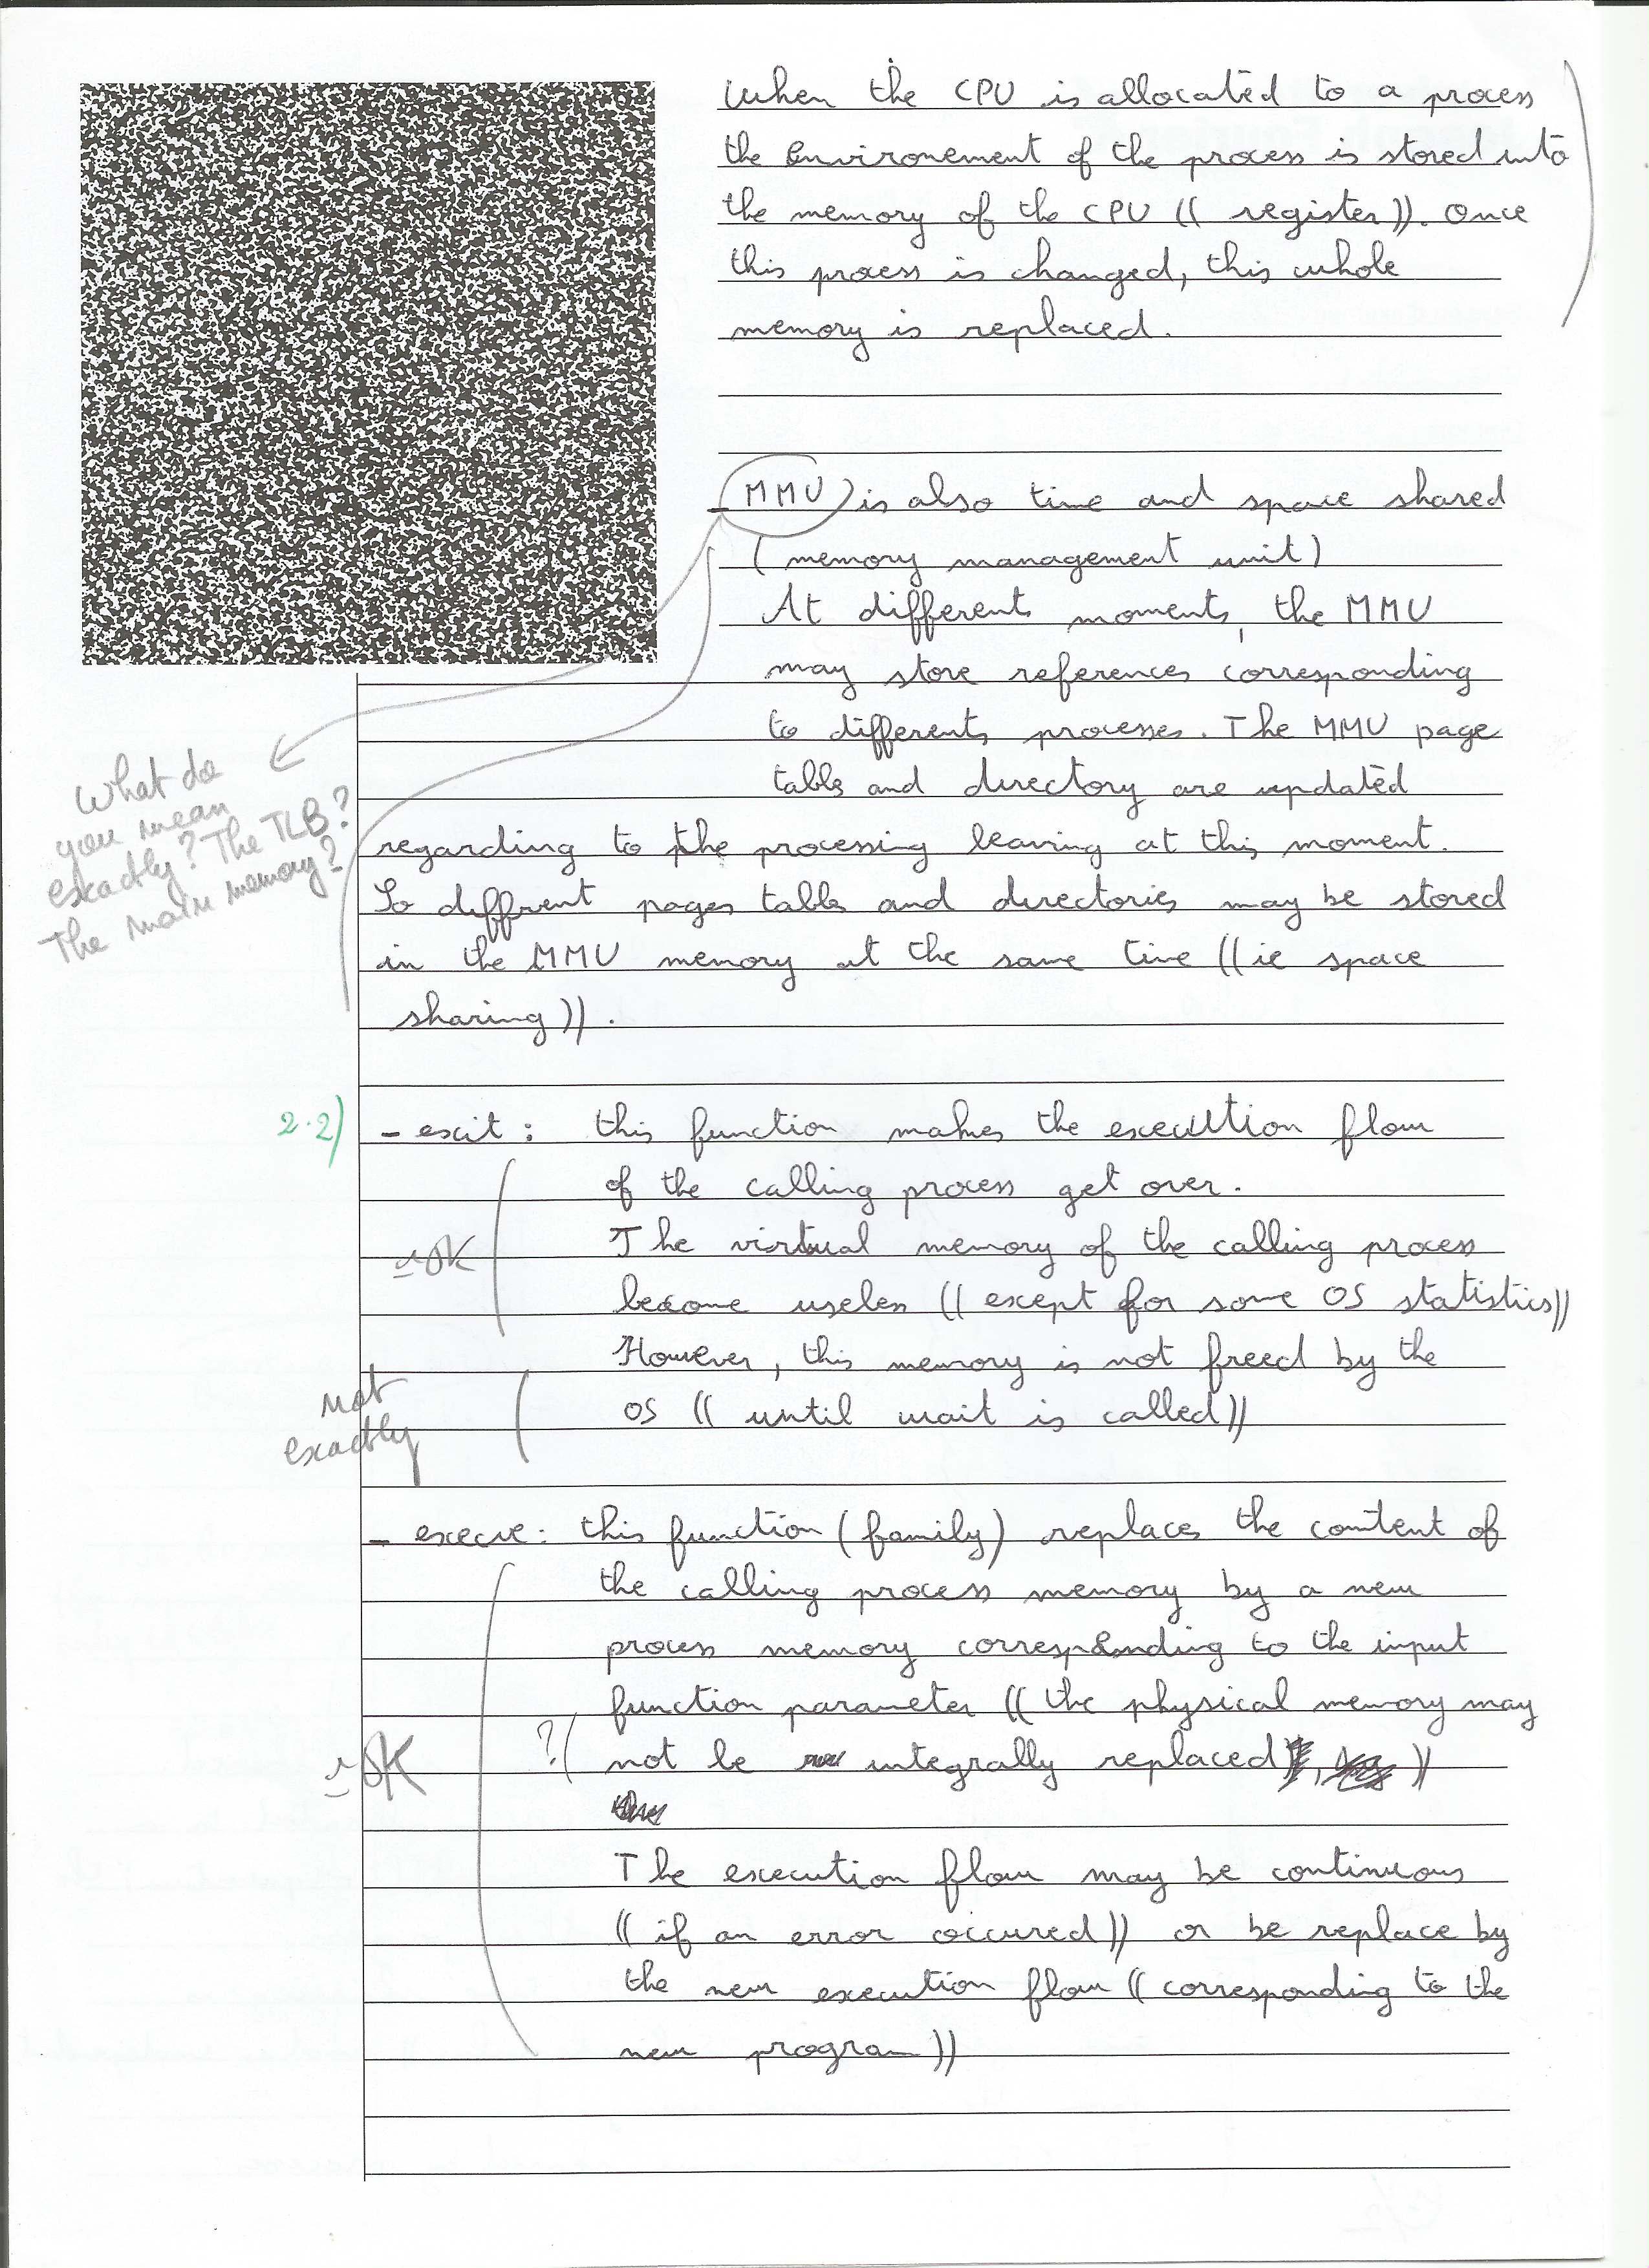 When the CPU is allocated to a process
the Environement of the process is stored into
the memory of the CPU (( register)). Once
this process is changed, this whole
memory is replaced.
- MMU is also time and space shared
(memory management unit)
At different moments, the MMU
may store references corresponding
to differents processes. The MMU page
table and directory are updated
What do
you mean
exactly? The TLB?
The main memory?
regarding to the processing leaving at this moment.
So diffrent pages table and directories may be stored
in the MMU memory at the same time ((ie space
sharing)).
2.2)
- exit : this function makes the execution flow
of the calling process get over.
~OK
The virtual memory of the calling process
become useless (( except for some OS statistics))
However, this memory is not freed by the
OS (( until wait is called))
not
exactly
- execve : this function (family) replaces the content of
the calling process memory by a new
process memory corresponding to the input
function parameter (( the physical memory may
?( not be integrally replaced ))
~OK
The execution flow may be continuous
(( if an error occured)) or be replace by
the new execution flow (( corresponding to the
new program))